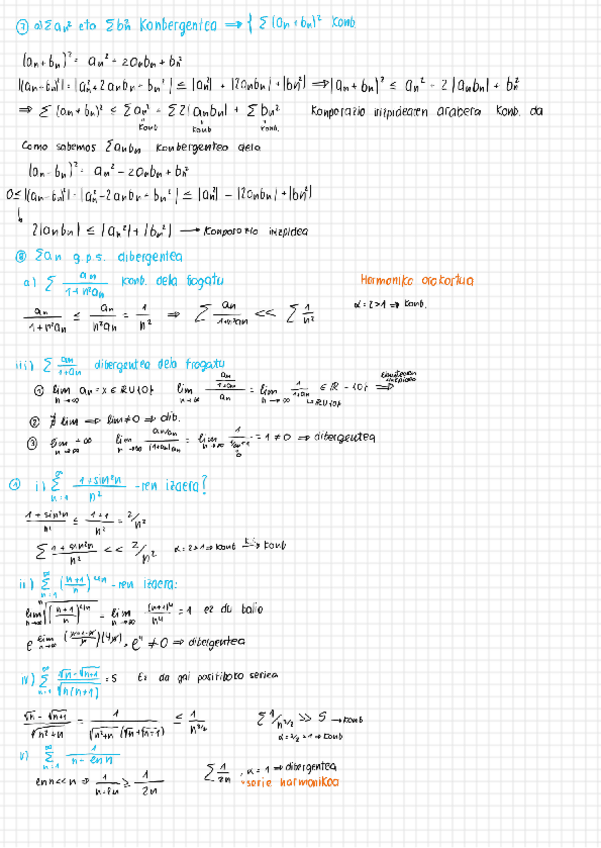 ⑦ a) Σan² eta Σbn² Konbergentea ⟹ { Σ(an+bn)² Konb
(an+bn)² = an² - 2anbn + bn²
|(an-bn)²| = |an²+2anbn - bn²| ≤ |an²| + |2anbn| + |bn²| ⟹ |an+bn|² ≤ an² - 2|anbn| + bn²
⟹ Σ(an+bn)² ≤ Σan² - Σ2|anbn| + Σbn² Konparazio irizpidearen arabera Konb. da
Konb Konb Konb.
Como sabemos Σanbn Konbergentea dela
(an-bn)² = an² - 2anbn + bn²
0≤|(an-bn)²| = |an²-2anbn+bn²| ≤ |an²| - |2anbn| + |bn²|
2|anbn| ≤ |an²| + |bn²| ⟶ Konparazio irizpidea
⑧ Σan g.p.s. dibergentea
a) Σ an/(1+n²an) konb. dela frogatu Harmoniko orokortua
an/(1+n²an) ≤ an/(n²an) = 1/n² ⟹ Σ an/(1+n²an) << Σ 1/n² α=2>1 ⟹ Konb.
iii) Σ an/(1+an) dibergentea dela frogatu
① lim n→∞ an = x ∈ ℝU{0} lim n→∞ (an/(1+an))/an = lim n→∞ 1/(1+an) ∈ ℝ-{0} ⟹
② ∄ lim ⟹ lim≠0 ⟹ dib.
③ lim n→∞ = ∞ lim n→∞ = lim n→∞ = 1 ≠ 0 ⟹ dibergentea
i) Σ n=1 ∞ (1+sin²n)/n² -ren izaera?
(1+sin²n)/n² ≤ (1+1)/n² = 2/n²
Σ (1+sin²n)/n² << 2/n² α=2>1 ⟹ Konb ⟶ Konb
ii) Σ n=1 ∞ ((n+1)/n)^4n -ren izaera:
lim n→∞ ⁿ√((n+1)/n)^4n = lim n→∞ (n+1)⁴/n⁴ = 1 ez du balio
e^lim n→∞ ((n+1-n)/n)(4n), e⁴ ≠ 0 ⟹ dibergentea
iv) Σ n=1 ∞ (√n-√n+1)/√n(n+1) = S Ez da gai positiboko seriea
(√n-√n+1)/√n²+n = 1/(√n²+n (√n+√n+1)) ≤ 1/n^3/2 Σ1/n^3/2 >> S ⟶ Konb
α=3/2>1 ⟹ Konb
v) Σ n=1 ∞ 1/(n-ln n)
ln n<<n ⟹ 1/(n-ln) ≥ 1/2n Σ 1/2n, α=1 ⟹ dibergentea
serie harmonikoa